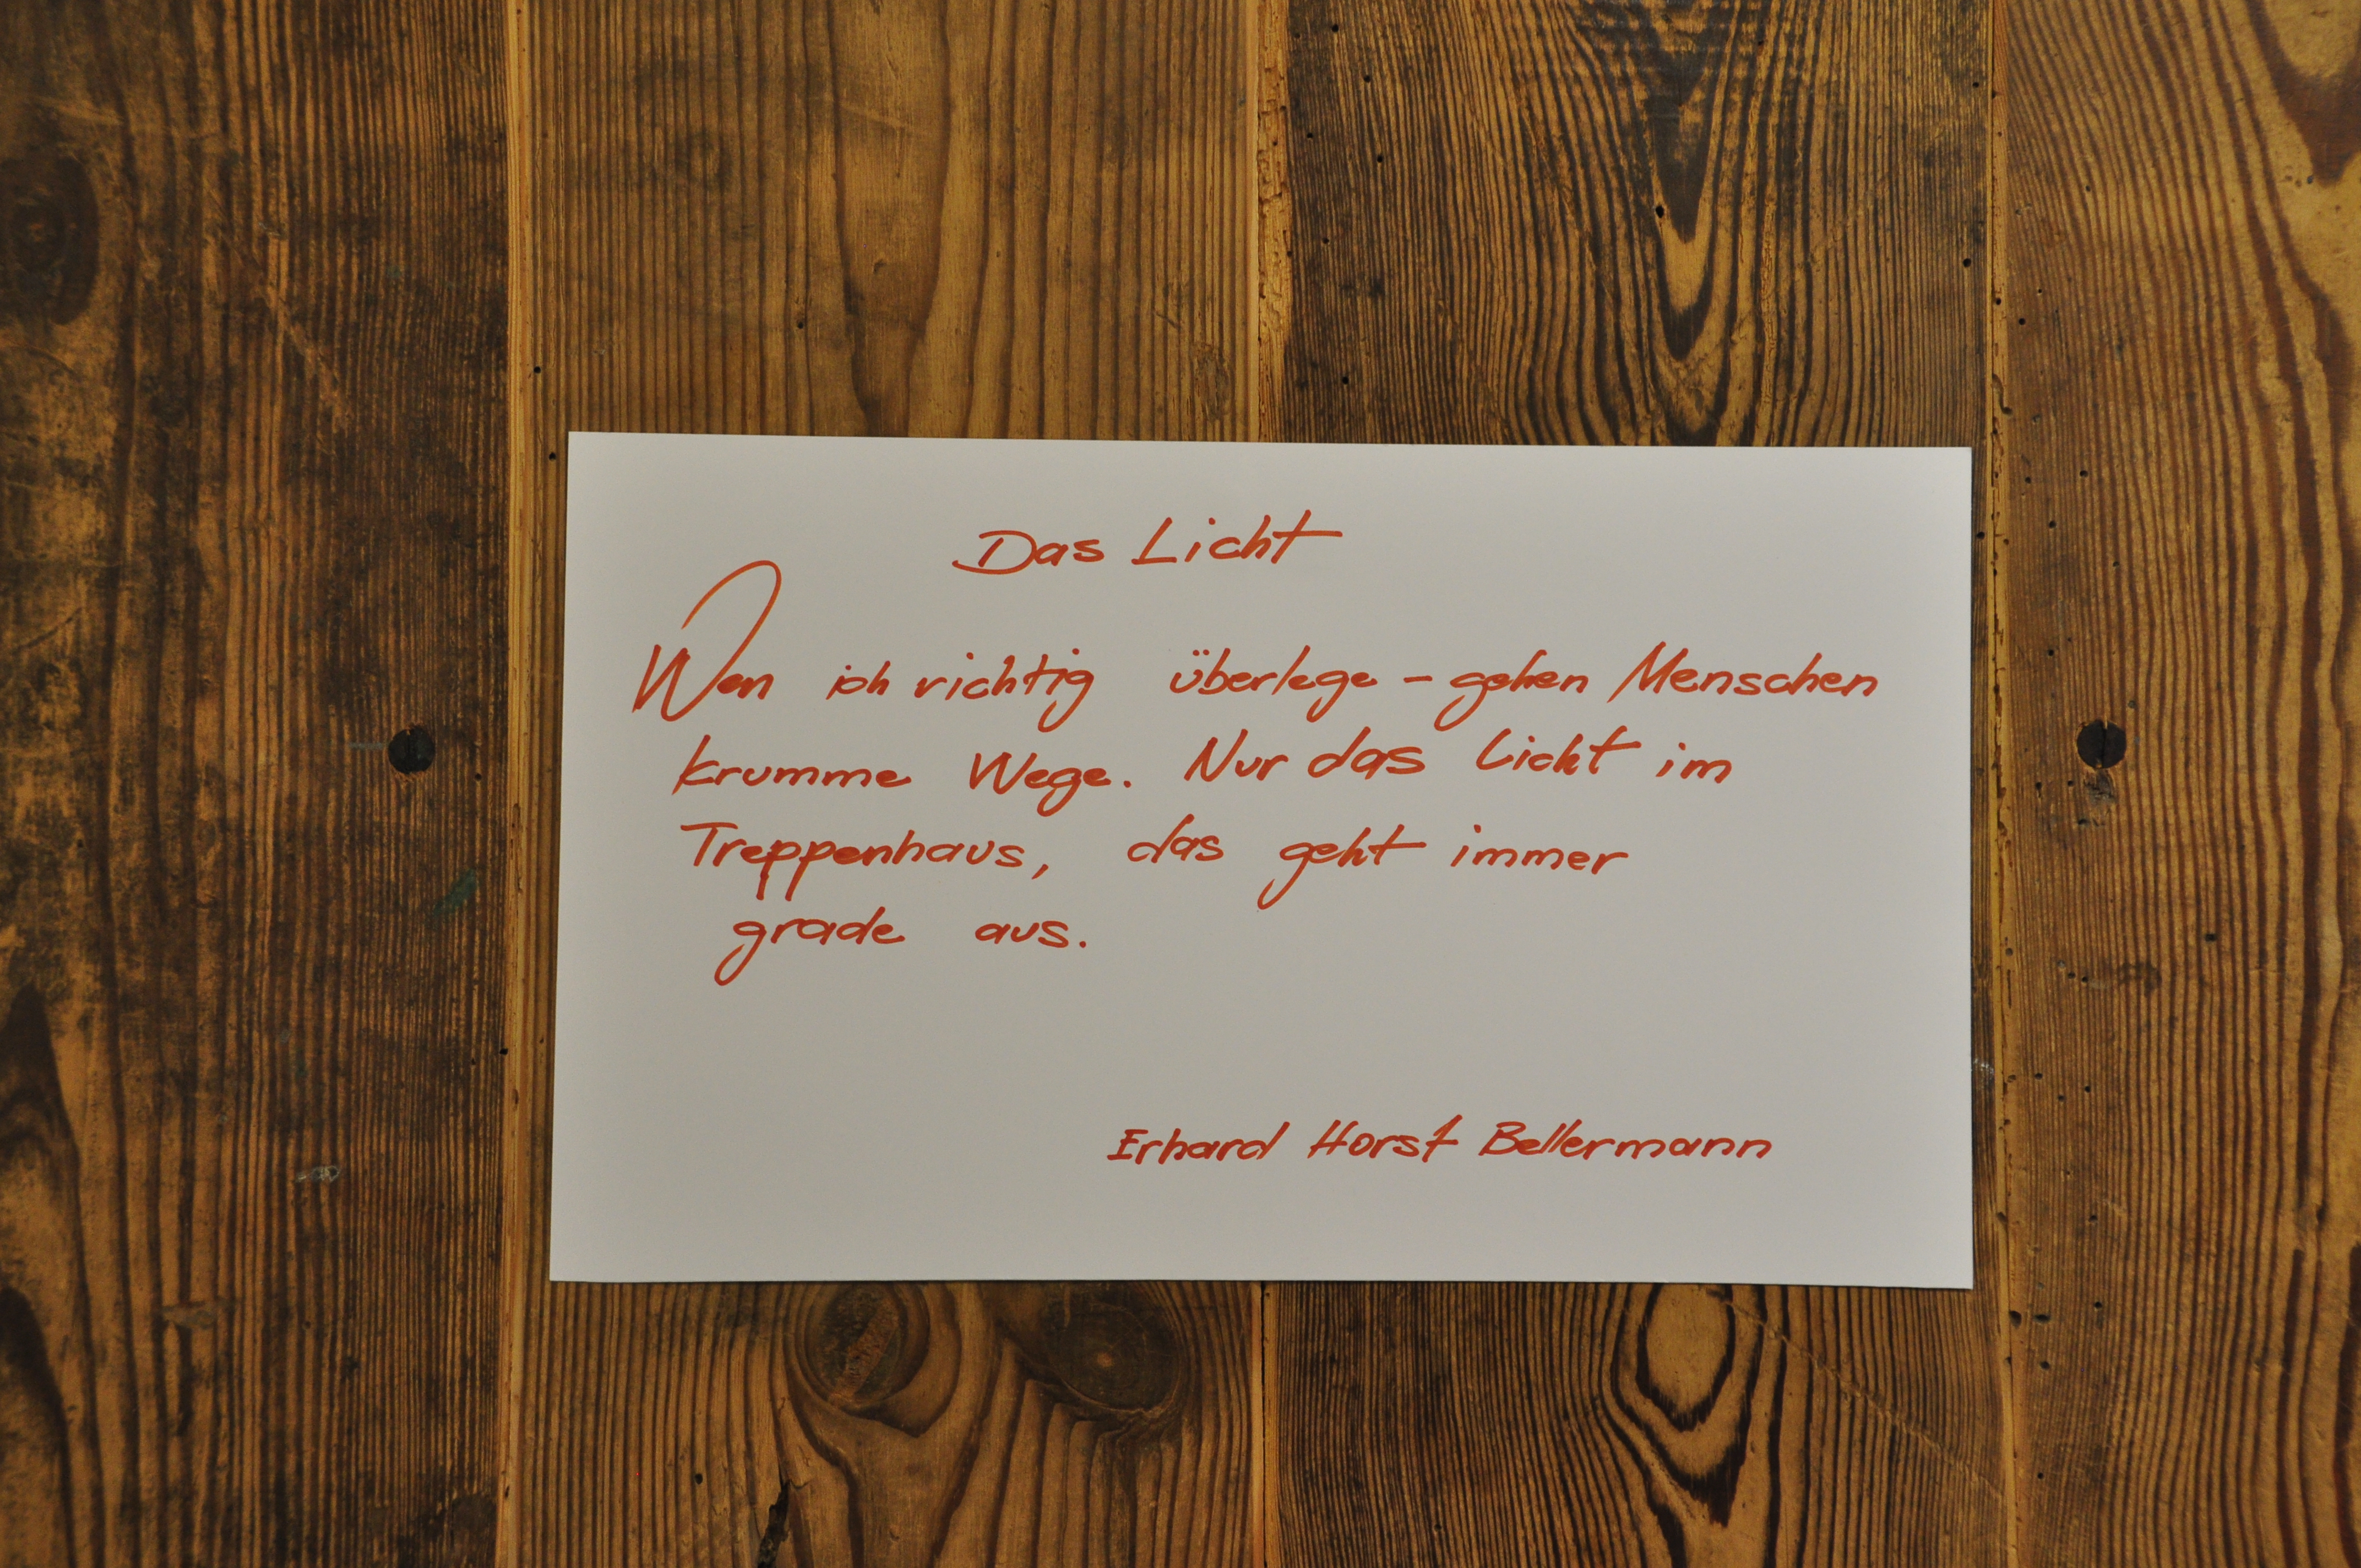 Das Licht
Wen ich richtig überlege – gehen Menschen
krumme Wege. Nur das Licht im
Treppenhaus, das geht immer
grade aus.
Erhard Horst Bellermann